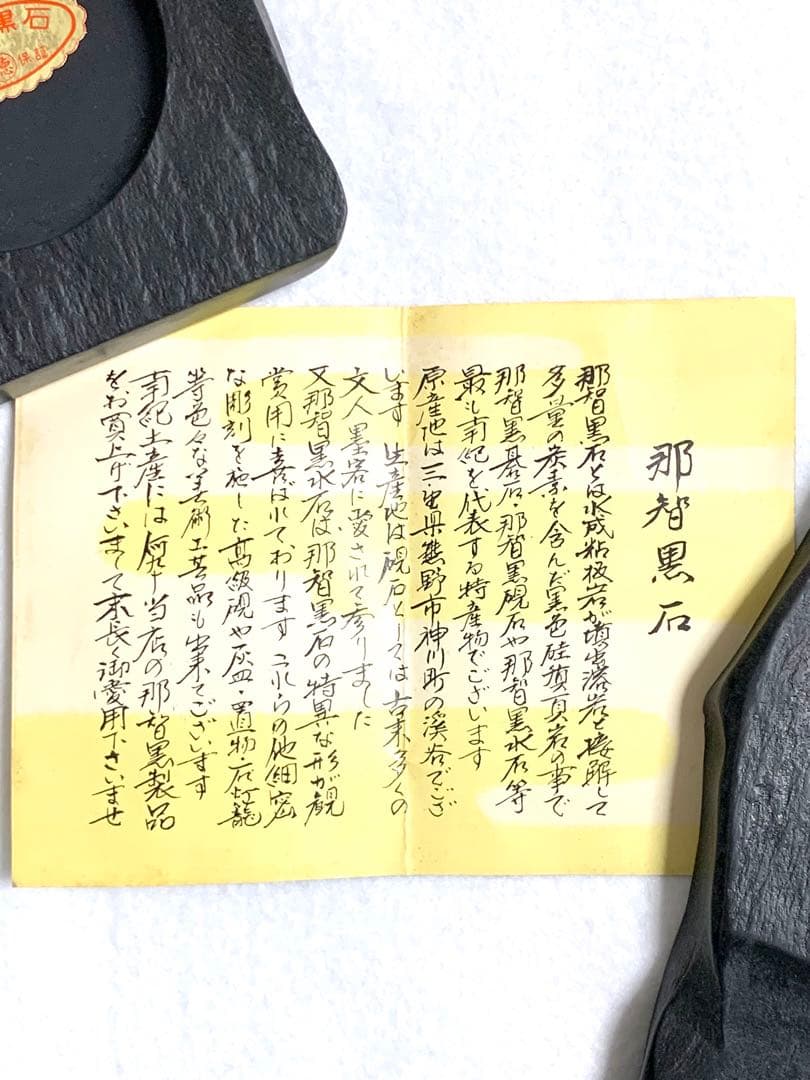 黒石
保証
那智黒石
那智黒石とは水成粘板岩が噴出溶岩と接解して
多量の炭素を含んだ黒色硅頁岩の事で
那智黒碁石・那智黒硯石や那智黒水石等
最も南紀を代表する特産物でございます
原産地は三重県熊野市神川町の渓谷でござ
います 生産地は硯石としては古来多くの
文人墨客に愛されて参りました
又那智黒水石は那智黒石の特異な形が観
賞用に喜ばれております これらの他細密
な彫刻を施した高級硯や灰皿・置物・石灯籠
等色々な美術工芸品も出来てございます
南紀土産には何卒当店の那智黒製品
をお買上げ下さいまして末長く御愛用下さいませ